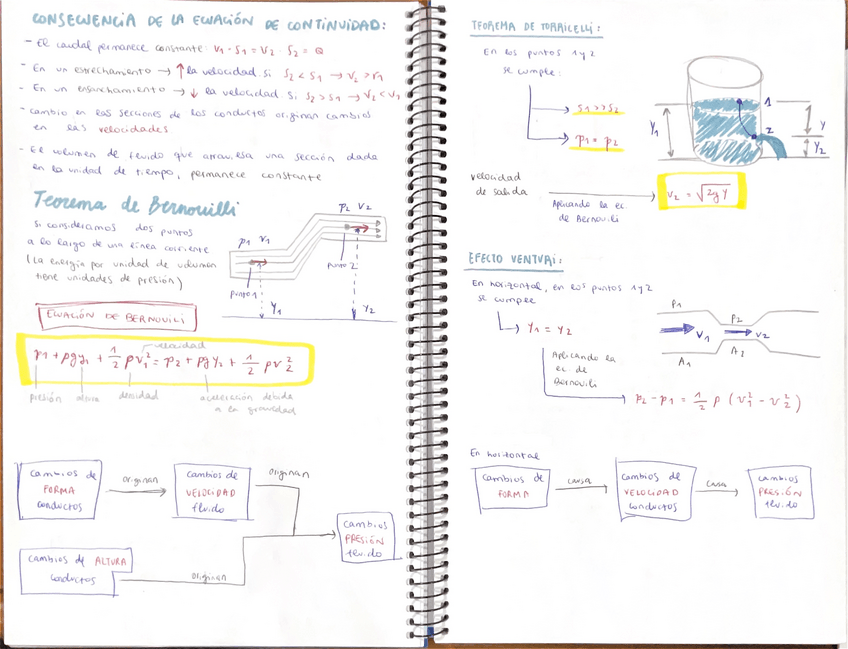 CONSECUENCIA DE LA ECUACIÓN DE CONTINUIDAD:
- El caudal permanece constante: V1 · S1 = V2 · S2 = Q
- En un estrechamiento → ↑ la velocidad. Si S2 < S1 → V2 > V1
- En un ensanchamiento → ↓ la velocidad. Si S2 > S1 → V2 < V1
- cambio en las secciones de los conductos originan cambios
en las velocidades.
- El volumen de fluido que atraviesa una sección dada
en la unidad de tiempo, permanece constante
Teorema de Bernouilli
Si consideramos dos puntos
a lo largo de una línea corriente
(La energía por unidad de volumen
tiene unidades de presión)
p1 V1
p2 V2
punto 1
punto 2
Y1
Y2
ECUACIÓN DE BERNOUILI
velocidad
p1 + ρgy1 + 1/2 ρv1² = p2 + ρgy2 + 1/2 ρv2²
presión
altura
densidad
aceleración debida
a la gravedad
cambios de
FORMA
conductos
originan
cambios de
VELOCIDAD
fluido
originan
cambios
PRESIÓN
fluido
cambios de ALTURA
conductos
originan
TEOREMA DE TORRICELLI:
En los puntos 1 y 2
se cumple:
S1 >> S2
p1 = p2
1
2
Y1
Y
Y2
velocidad
de salida
Aplicando la ec.
de Bernouili
V2 = √2gY
EFECTO VENTURI:
En horizontal, en los puntos 1 y 2
se cumple
Y1 = Y2
Aplicando la
ec. de
Bernouili
P2 - P1 = 1/2 ρ (V1² - V2²)
P1
P2
V1
V2
A1
En horizontal
Cambios de
FORMA
causa
Cambios de
VELOCIDAD
conductos
causa
cambios
PRESIÓN
fluido